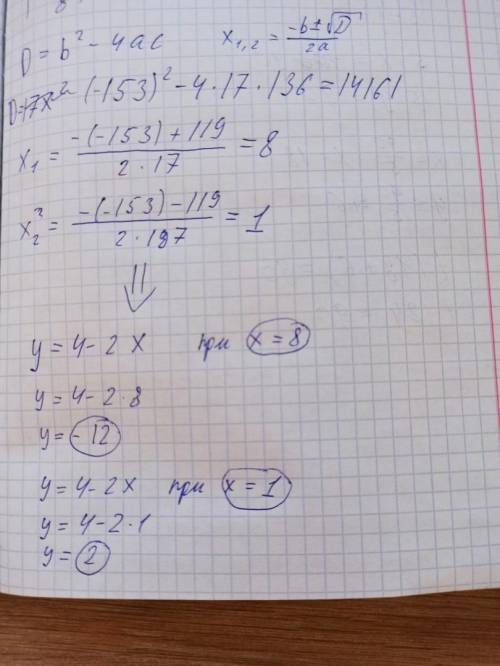 D = b² - 4ac   x₁,₂ = (-b ± √D) / 2a
(-153)² - 4 · 17 · 136 = 14161
x₁ = (-(-153) + 119) / (2 · 17) = 8
x₂ = (-(-153) - 119) / (2 · 187) = 1
⇓
y = 4 - 2x   при x = 8
y = 4 - 2 · 8
y = -12
y = 4 - 2x   при x = 1
y = 4 - 2 · 1
y = 2